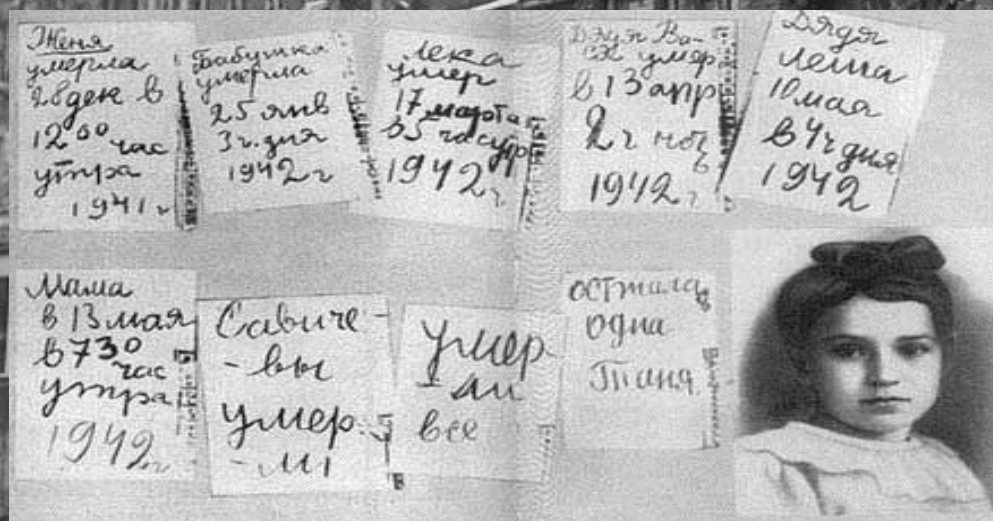 Женя
умерла
28 дек в
12⁰⁰ час
утра
1941 г
Бабушка
умерла
25 янв
3 ч. дня
1942 г
Лека
умер
17 марта
в 5 час утр
1942 г
Дядя Ва-
ся умер
в 13 апр
2 ч ноч
ь
1942 г
Дядя
Леша
10 мая
в 4 ч дня
1942
Мама
в 13 мая
в 7 30
час
утра
1942 г
Савиче-
-вы
умер-
-ли
умер-
-ли
все
осталась
одна
Таня